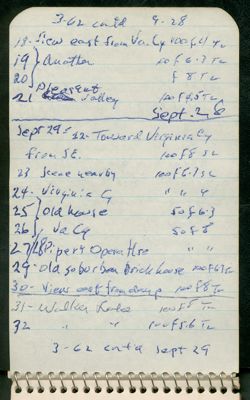 3-62 cont'd 9-28
18- View east from Va. Cy 100 f 4 Tu
19 } Another 50 f 6.3 Tu
20 f 8 Tu
21 Pleasant Valley 100 f 4.5 Tu
Sept. 28
Sept 29 = 22- Toward Virginia Cy
from SE. 100 f 8 Su
23 Scene nearby 100 f 6.3 Su
24- Virginia Cy
25 } Old house 50 f 6.3
26 Va Cy 50 f 8
27/28 Piper's Opera Hse " "
29- Old suburban brick house 100 f 6.3 Tu
30- View east from dump 100 f 8 Tu
31- Walker Lake 100 f 5 Tu
32 " " 100 f 5.6 Tu
3-62 cont'd Sept 29